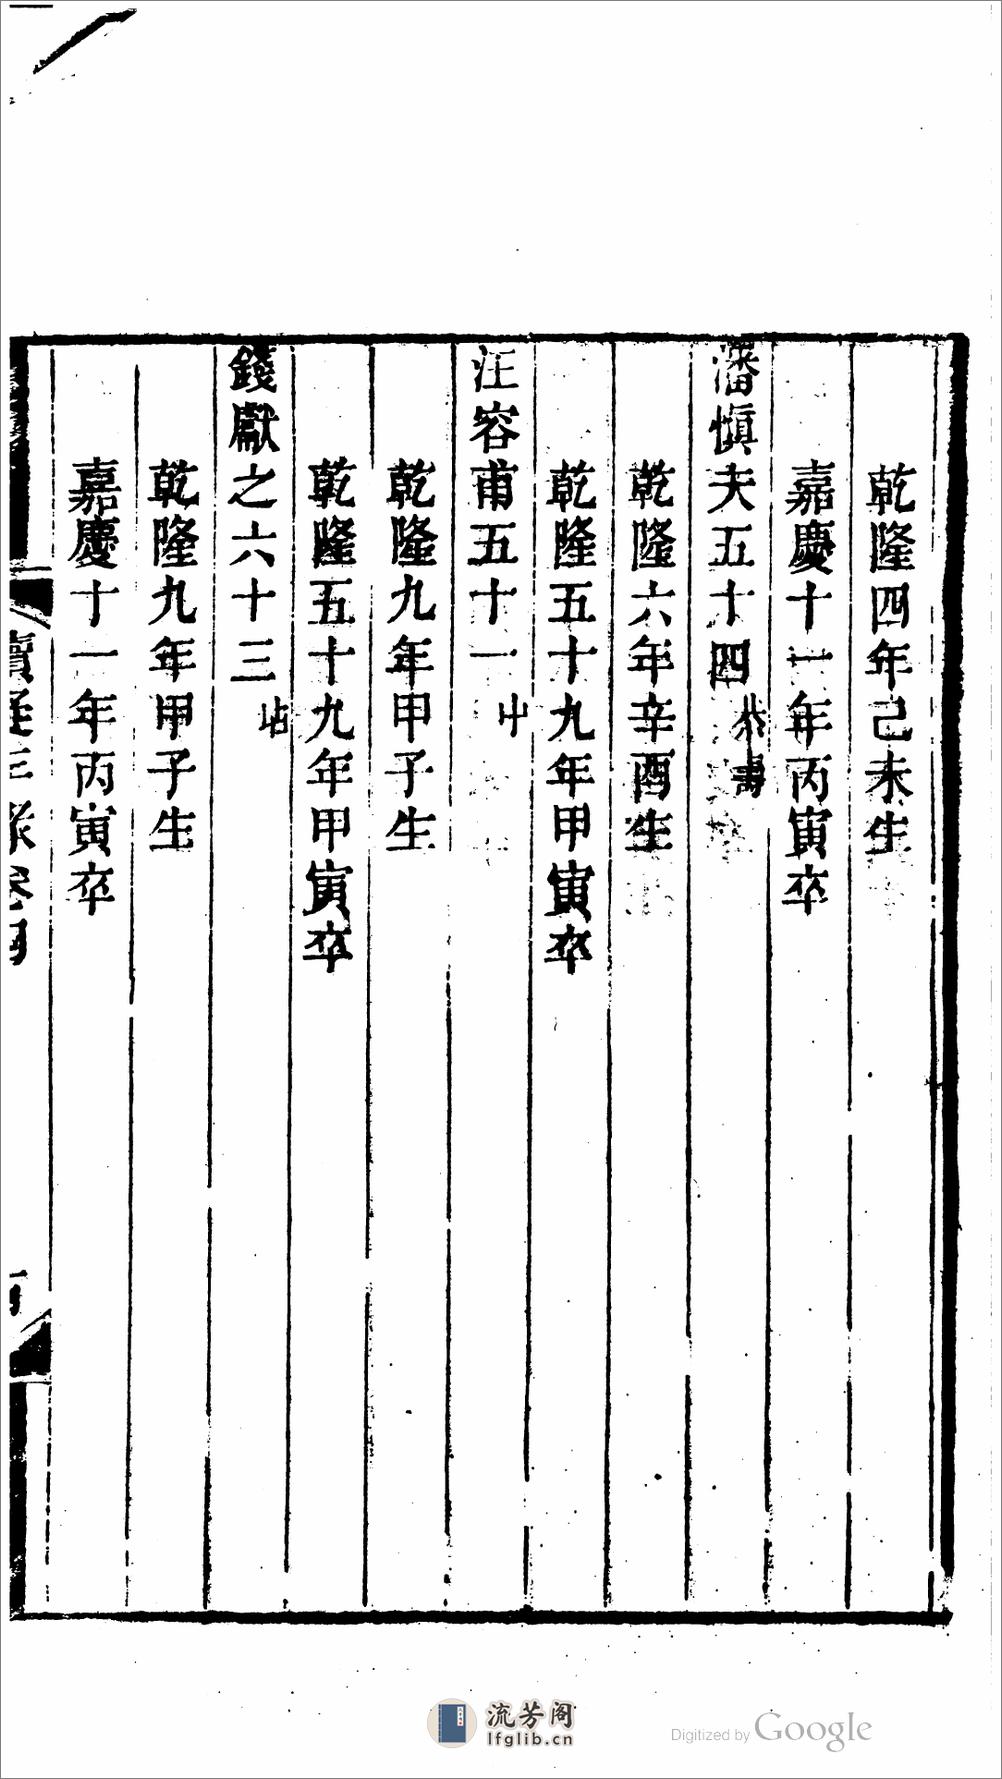 乾隆四年己未生
嘉慶十一年丙寅卒
潘愼夫五十四 奕壽
乾隆六年辛酉生
乾隆五十九年甲寅卒
汪容甫五十一 中
乾隆九年甲子生
乾隆五十九年甲寅卒
錢獻之六十三 坫
乾隆九年甲子生
嘉慶十一年丙寅卒
續疑年录卷四
流芳阁
lfglib.cn
Digitized by Google